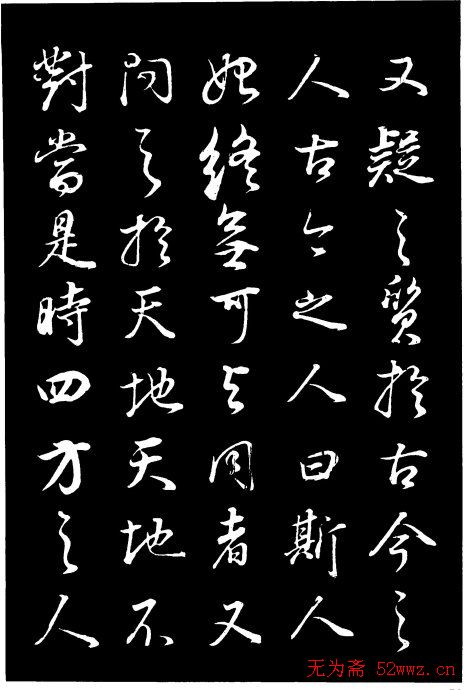 又疑之質於古今之
人古今之人曰斯人
始終無可與同者又
問之於天地天地不
對當是時四方之人
无为斋 52wwz.cn